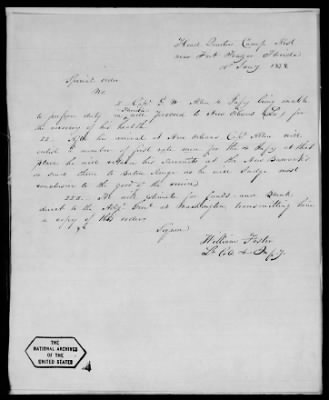 Head Quarters Camp
near Fort Florida
Jany 1838
Special order
No
I Capt. G. W. Allen 4 Infy being unable
to perform duty in Florida will proceed to New Orleans (La) for
the recovery of his health
II. After his arrival at New Orleans Capt Allen will
enlist number of first rate men for the 4 Infy at that
place he will retain his recruits at the New Barracks
or send them to Baton Rouge as he will Judge most
conducive to the good of the service
III. He will estimate for funds and
direct to the Adjt Genl at Washington transmitting him
a copy of this order
Signed
William Foster
Lt Col 4 Infy
THE
NATIONAL ARCHIVES
OF THE
UNITED STATES